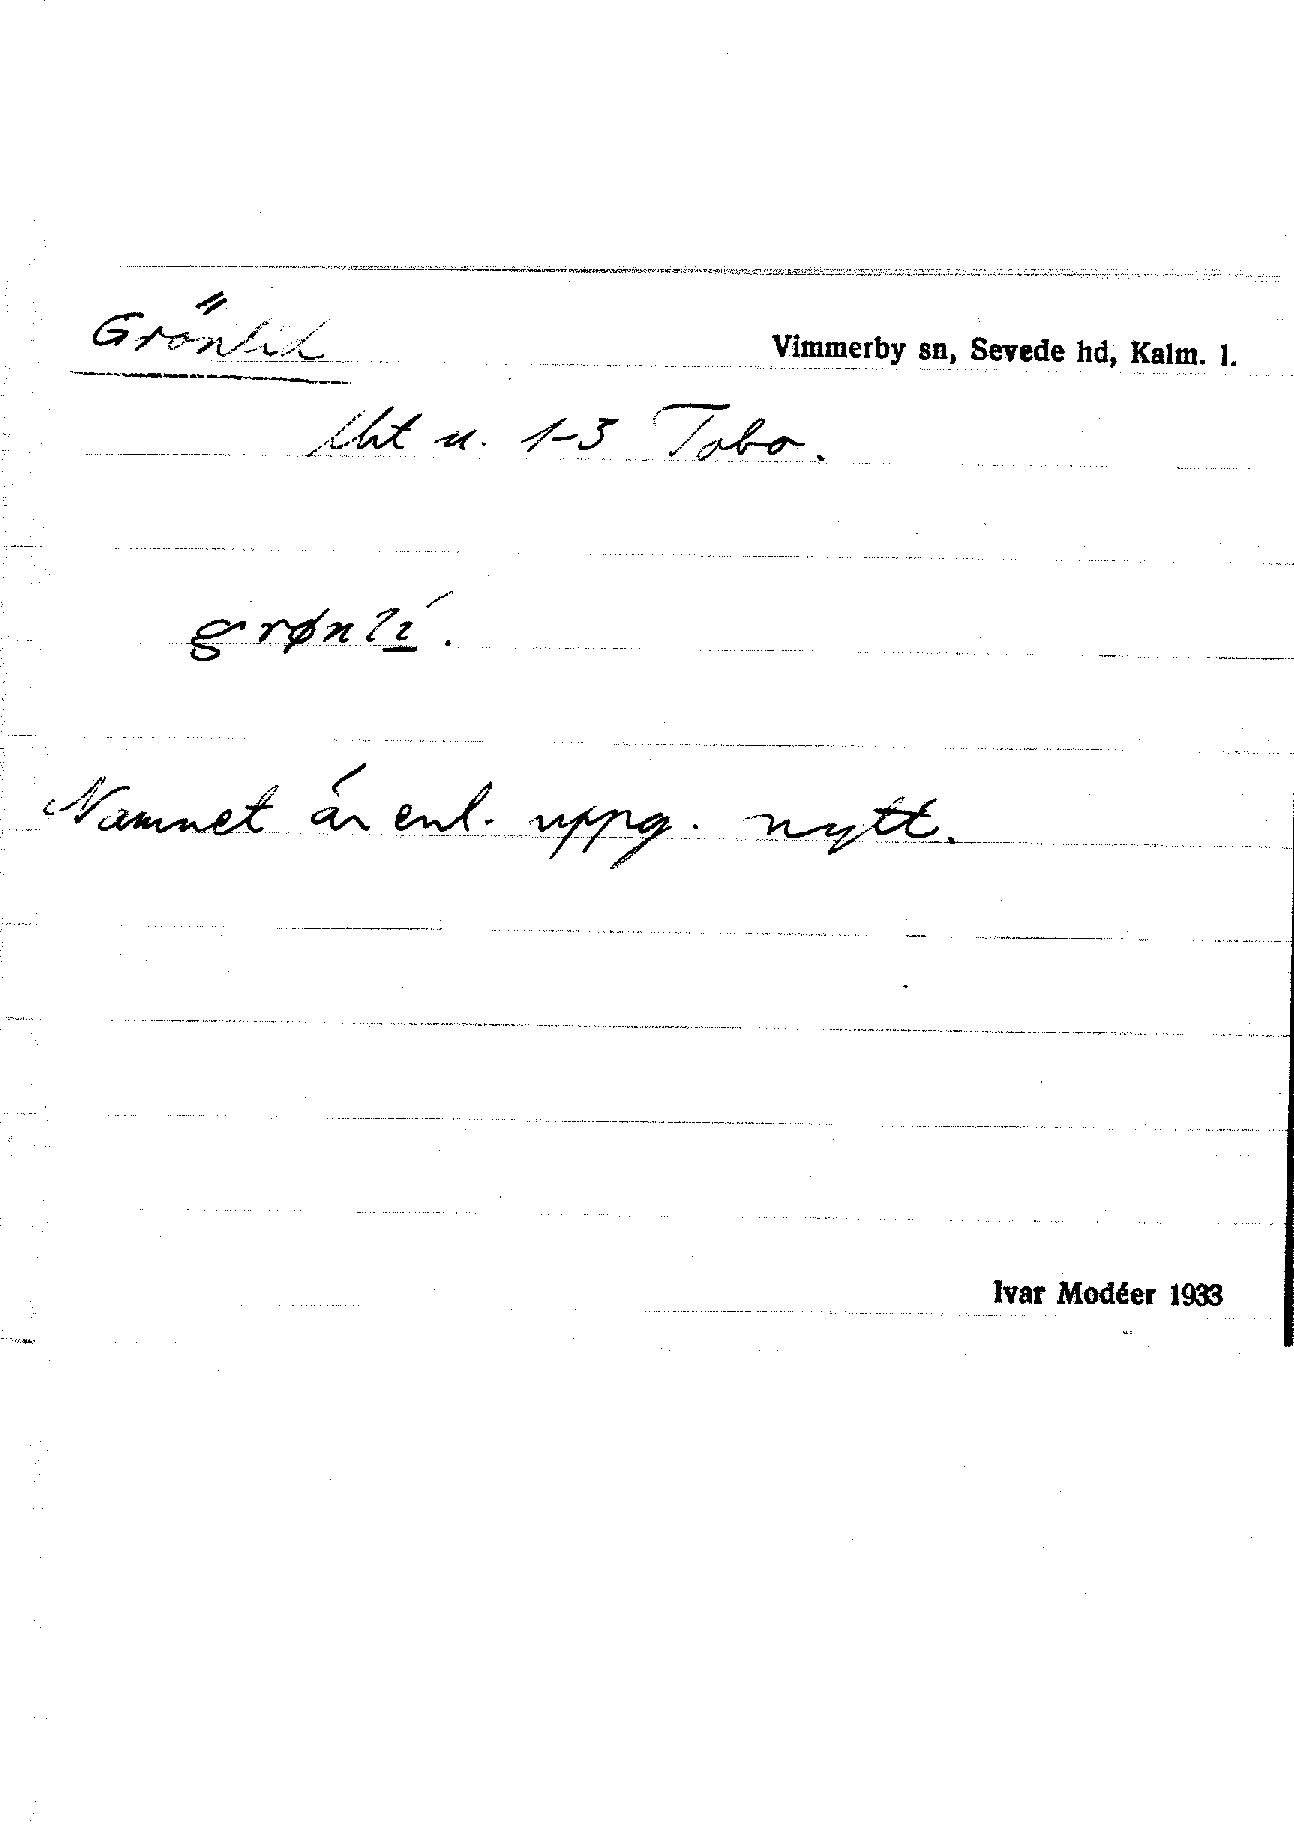 Grönlid
Vimmerby sn, Sevede hd, Kalm. l.
lht u. 1-3 Tobo.
grønlí.
Namnet är enl. uppg. nytt.
Ivar Modéer 1933